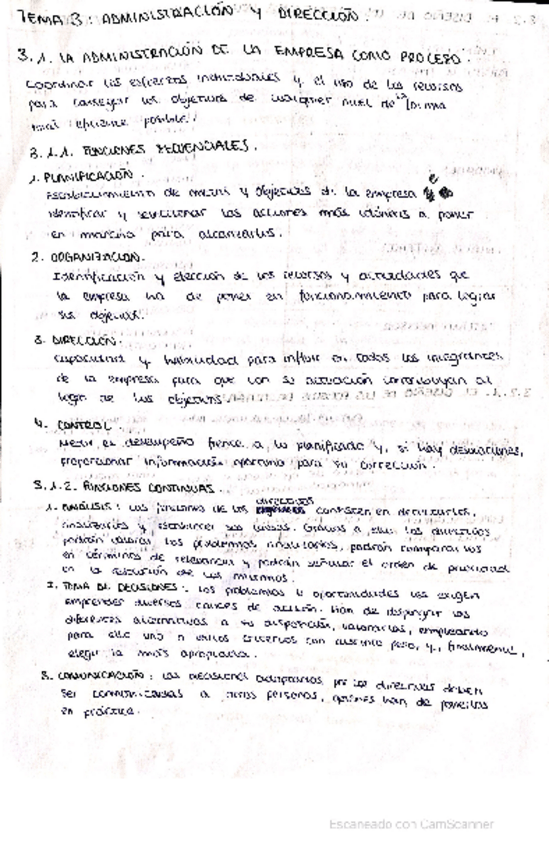 TEMA 3: ADMINISTRACIÓN Y DIRECCIÓN.
3.1. LA ADMINISTRACIÓN DE LA EMPRESA COMO PROCESO.
Coordinar los esfuerzos individuales y el uso de los recursos
para conseguir los objetivos de cualquier nivel de la forma
más eficiente posible.
3.1.1. FUNCIONES SECUENCIALES.
1. PLANIFICACIÓN.
Establecimiento de metas y objetivos de la empresa e
identificar y seleccionar las acciones más idóneas a poner
en marcha para alcanzarlos.
2. ORGANIZACIÓN.
Identificación y elección de los recursos y actividades que
la empresa ha de poner en funcionamiento para lograr
sus objetivos.
3. DIRECCIÓN.
Capacidad y habilidad para influir en todos los integrantes
de la empresa para que con su actuación contribuyan al
logro de los objetivos.
4. CONTROL.
Medir el desempeño frente a lo planificado y, si hay desviaciones,
proporcionar información oportuna para su corrección.
3.1.2. FUNCIONES CONTINUAS.
1. ANÁLISIS: las funciones de los directivos consisten en
analizarlos y establecer sus causas. Gracias a ellas los directivos
podrán valorar los problemas, podrán compararlos
en términos de relevancia y podrán señalar el orden de prioridad
en la resolución de los mismos.
2. TOMA DE DECISIONES: los problemas u oportunidades les exigen
emprender diversos cauces de acción. Han de las
diferentes alternativas a su disposición, valorarlas, empleando
para ello uno o varios criterios con distinto peso, y, finalmente,
elegir la más apropiada.
3. COMUNICACIÓN: las decisiones adoptadas por los directivos deben
ser comunicadas a otras personas, quienes han de ponerlas
en práctica.
Escaneado con CamScanner